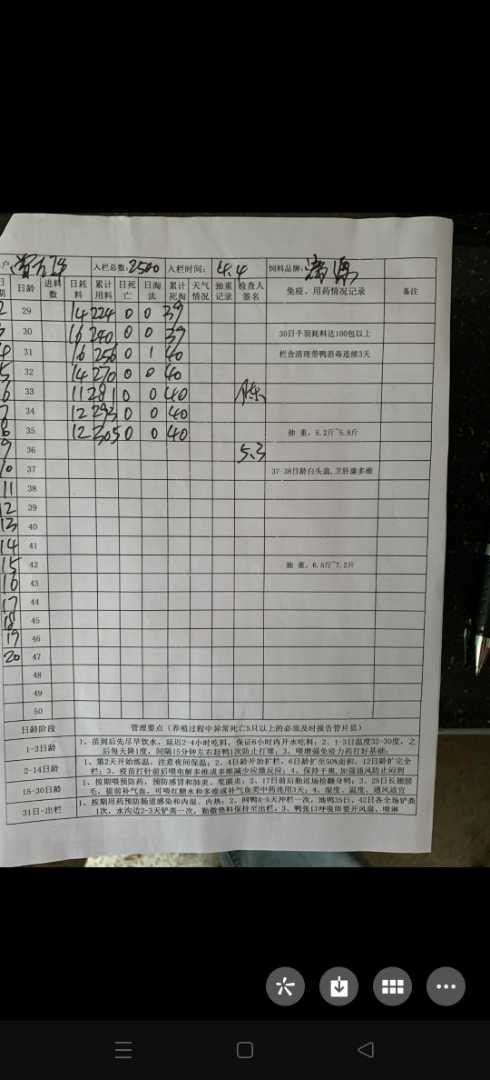 户 入栏总数:2500 入栏时间: 4.4 饲料品牌:
日期 日龄 进料数 日耗料 累计用料 日死亡 日淘汰 累计死淘 天气情况 抽重记录 检查人签名 免疫、用药情况记录 备注
2 29 14 224 0 0 39
30 16 240 0 0 39 30日千羽耗料达100包以上
4 31 16 256 0 1 40 栏舍清理带鸭消毒连续3天
5 32 14 270 0 0 40
6 33 11 281 0 0 40
7 34 12 293 0 0 40
8 35 12 305 0 0 40 抽 重：5.2斤~5.8斤
9 36 5.3
10 37 37-38日龄白头翁,卫肝康多维
11 38
12 39
13 40
14 41
15 42 抽 重：6.5斤~7.2斤
16 43
17 44
18 45
19 46
20 47
48
49
50
日龄阶段 管理要点（养殖过程中异常死亡5只以上的必须及时报告管片员）
1-3日龄 1、苗到后先尽早饮水，延迟2-4小时吃料，保证6小时内开水吃料；2、1-3日温度32-30度，之后每天降1度，间隔15分钟左右赶鸭1次防止打堆；3、喂增强免疫力药打好基础；
2-14日龄 1、第2天开始炼温，注意夜间保温；2、4日龄开始扩栏，6日龄扩至50%面积，12日龄扩完全栏；3、疫苗打针前后喂电解多维或多维减少应激反应；4、保持干爽,加强通风防止闷到
15-30日龄 1、按期喂预防药，预防感冒和肺炎、浆膜炎；2、17日前后勤巡场捡翻身鸭；3、25日长翅膀毛，提前补气血，可喂红糖水和多维或补气血类中药连用3天；4、湿度、温度、通风适宜
31日-出栏 1、按期用药预防肠道感染和内湿、内热；2、网鸭4-5天冲栏一次，地鸭35日、42日各全场铲粪1次，水沟边2-3天铲粪一次，勤撒垫料保持至出栏；3、鸭张口呼吸需要开风湿、喷淋